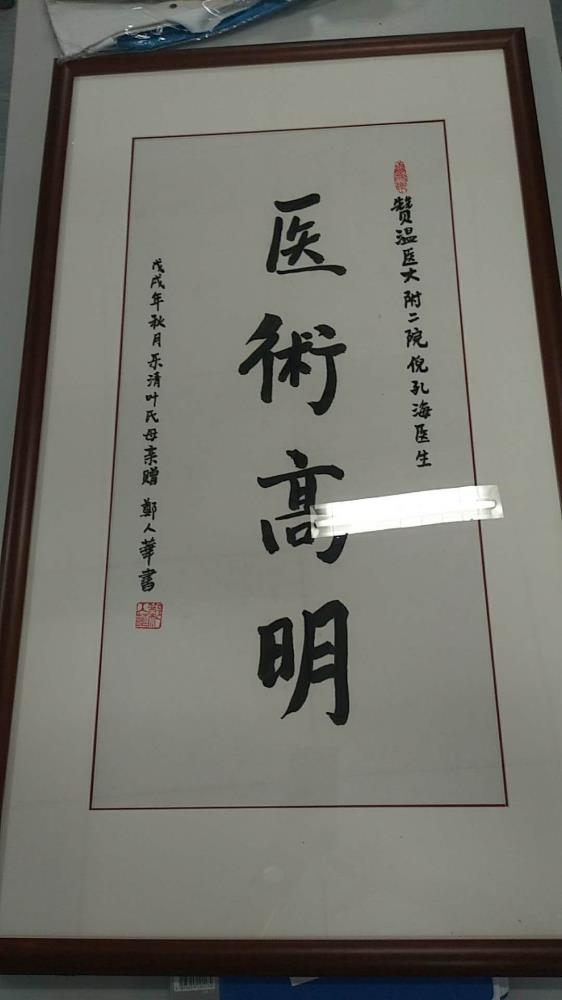 赞温医大附二院倪孔海医生
医術高明
戊戌年秋月乐清叶氏母亲赠 鄭人華書